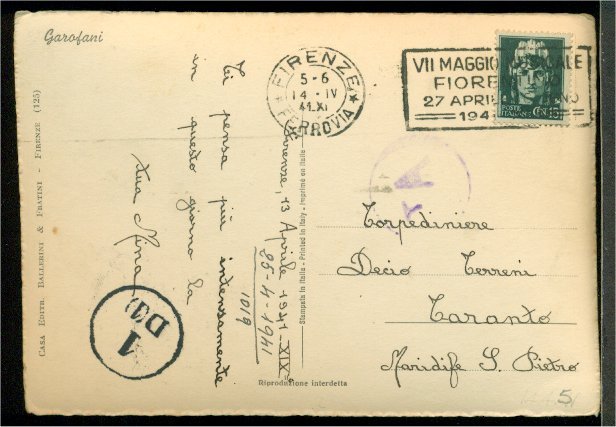 Garofani
FIRENZE
5-6
14-IV
41.XI
FERROVIA
VII MAGGIO MUSICALE
FIORE
27 APRILE
194
POSTE
ITALIANE
CENT. 15
Firenze, 13 Aprile 1941-XIX-
Ti pensa più intensamente
in questo giorno la
tua Nina
25-4-1941
1019
Torpediniere
Decio Terreni
Taranto
Maridife S. Pietro
1
D(1)
CASA EDITR. BALLERINI & FRATINI - FIRENZE (125)
Stampata in Italia - Printed in Italy - Imprimé en Italie
Riproduzione interdetta
5